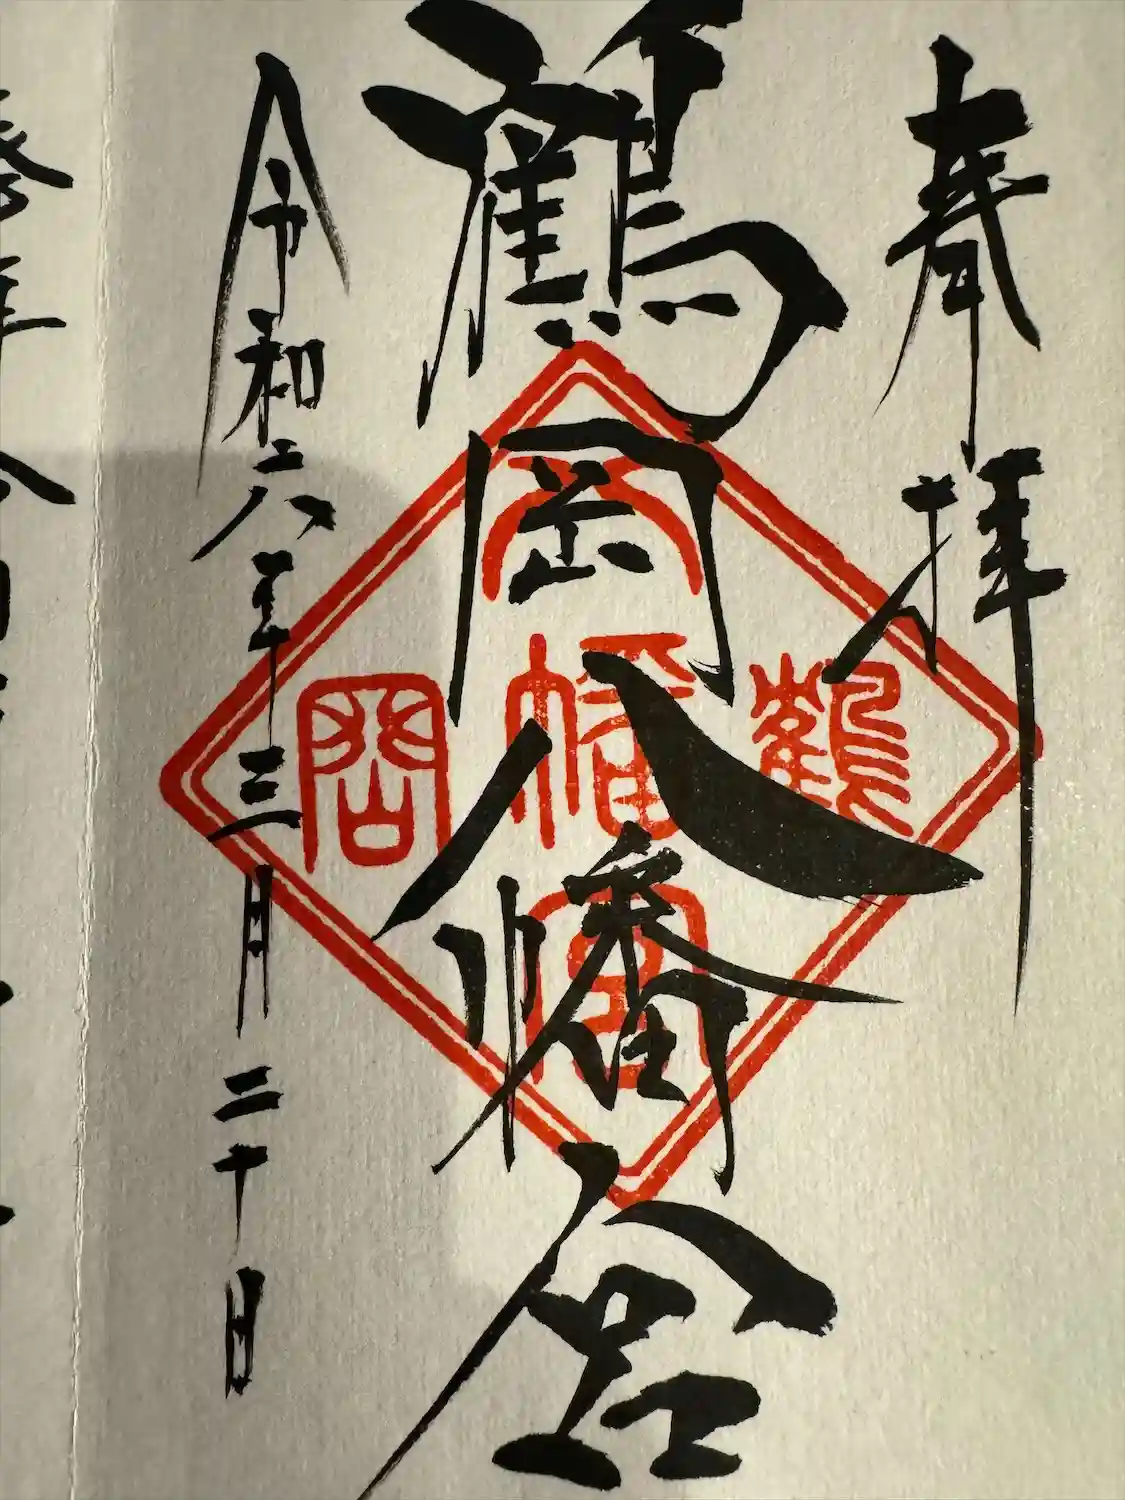 奉拝
鶴岡八幡宮
令和六年三月二十日
鶴
岡
八
幡
宮